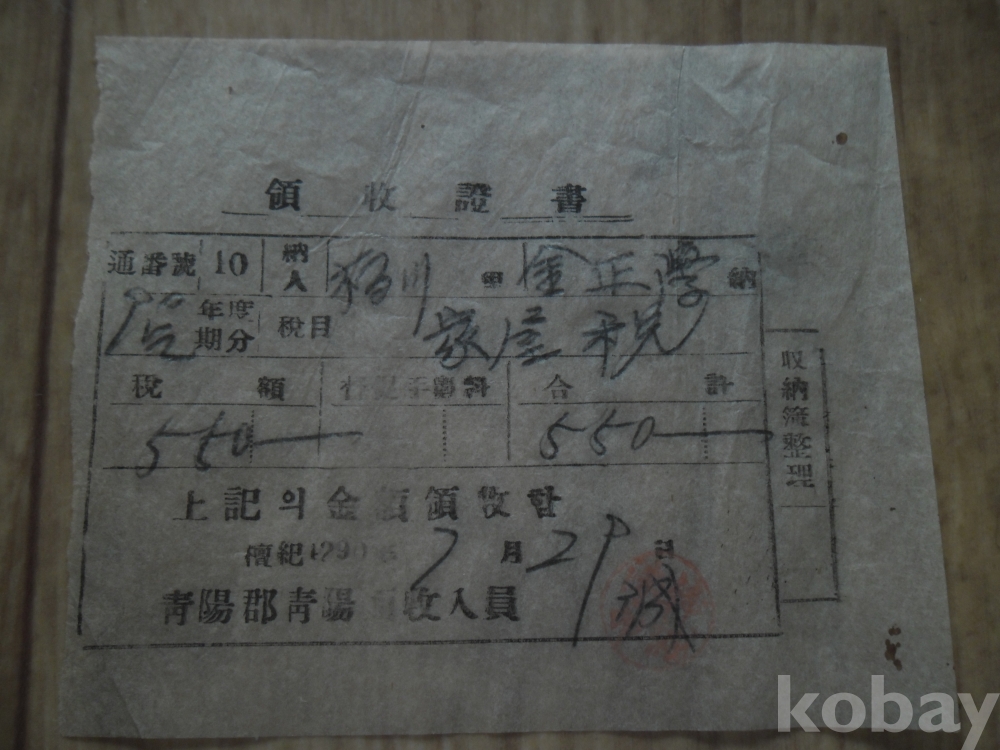 領收證書
通番號 10 納入 川 金正學 納
年度 期分 稅目 家屋税
稅額 督促手數料 合計
550— 550—
上記의 金額領收함
檀紀4290年 7月 29日
靑陽郡靑陽面收入員
收納簿整理
kobay